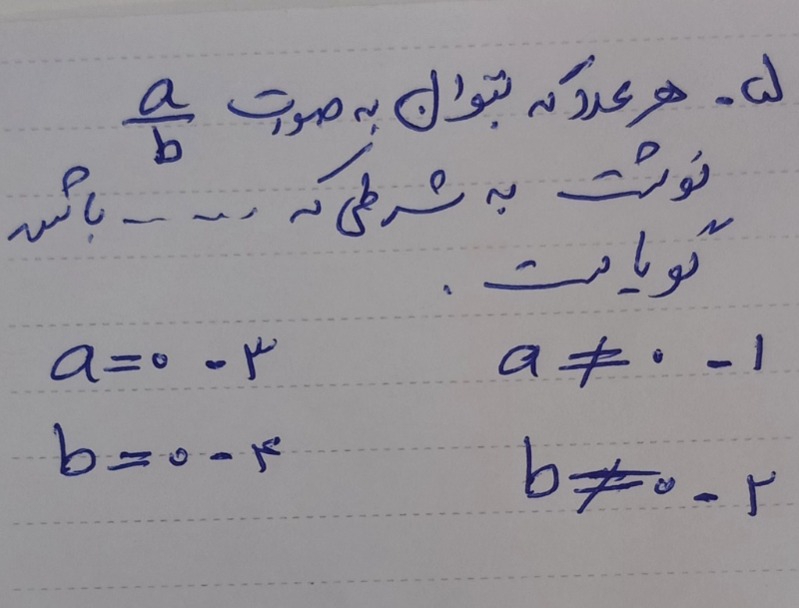 ۵- هر عدد که بتوان به صورت a/b
نوشت به شرطی که .... باشد
گویاست.
۱- a ≠ ۰ ۳- a = ۰
۲- b ≠ ۰ ۴- b = ۰